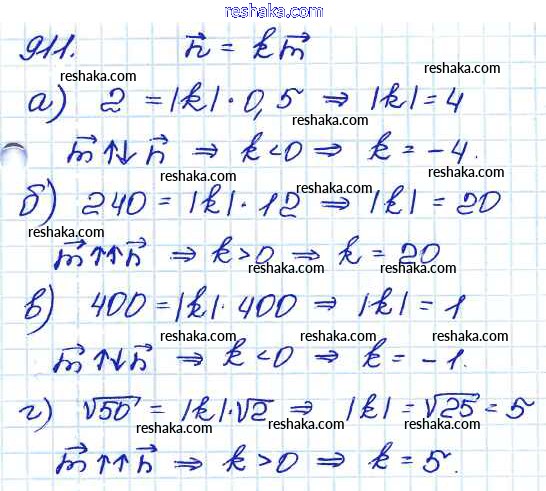 gdz.reshaka.com
911. n⃗ = k m⃗
reshaka.com reshaka.com
а) 2 = |k| · 0,5 ⇒ |k| = 4
reshaka.com
m⃗ ↑↓ n⃗ ⇒ k < 0 ⇒ k = -4.
reshaka.com reshaka.com
б) 240 = |k| · 12 ⇒ |k| = 20
reshaka.com reshaka.com
m⃗ ↑↑ n⃗ ⇒ k > 0 ⇒ k = 20
reshaka.com reshaka.com
в) 400 = |k| · 400 ⇒ |k| = 1
reshaka.com reshaka.com
m⃗ ↑↓ n⃗ ⇒ k < 0 ⇒ k = -1.
reshaka.com reshaka.com
г) √50 = |k| · √2 ⇒ |k| = √25 = 5
reshaka.com reshaka.com
m⃗ ↑↑ n⃗ ⇒ k > 0 ⇒ k = 5.
reshaka.com reshaka.com